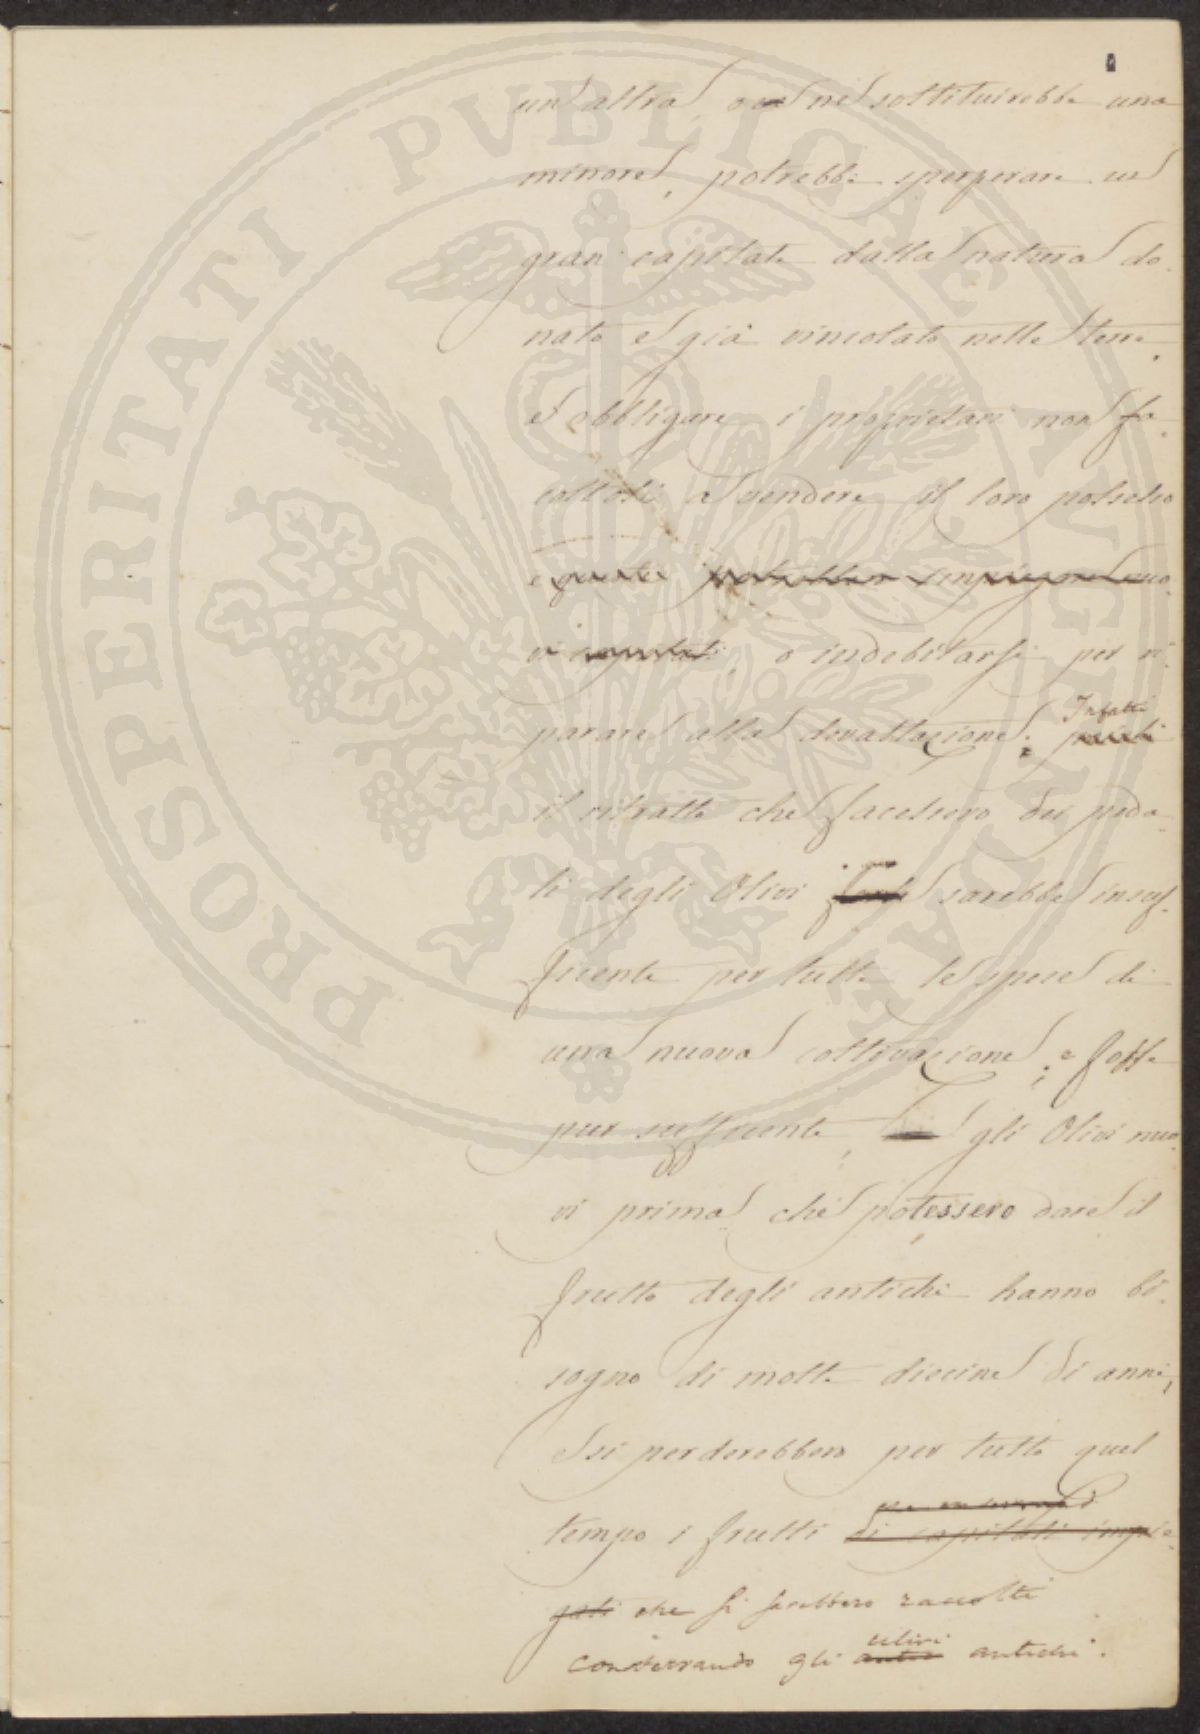 un'altra, o ne sostituirebbe una
minore, potrebbe sperperare un
gran capitale dalla natura do-
nato e già vincolato nelle terre,
e obbligare i proprietari non fa-
coltosi a vendere il loro polsesso
e questi potrebbero impiegare nuo-
vi capitali, o indebitarsi per ri-
parare alla devastazione. Infatti
il ritratto che facessero dei peda-
li degli Olivi sarebbe insuf-
ficente per tutte le spese di
una nuova coltivazione; e fosse
pur sufficente, gli Olivi nuo-
vi prima che potessero dare il
frutto degli antichi hanno bi-
sogno di molte diecine di anni,
e si perderebbero per tutto quel
tempo i frutti di capitali impie-
gati che si sarebbero raccolti
conservando gli ulivi antichi.
PROSPERITATI PVBLICAE AVGENDAE